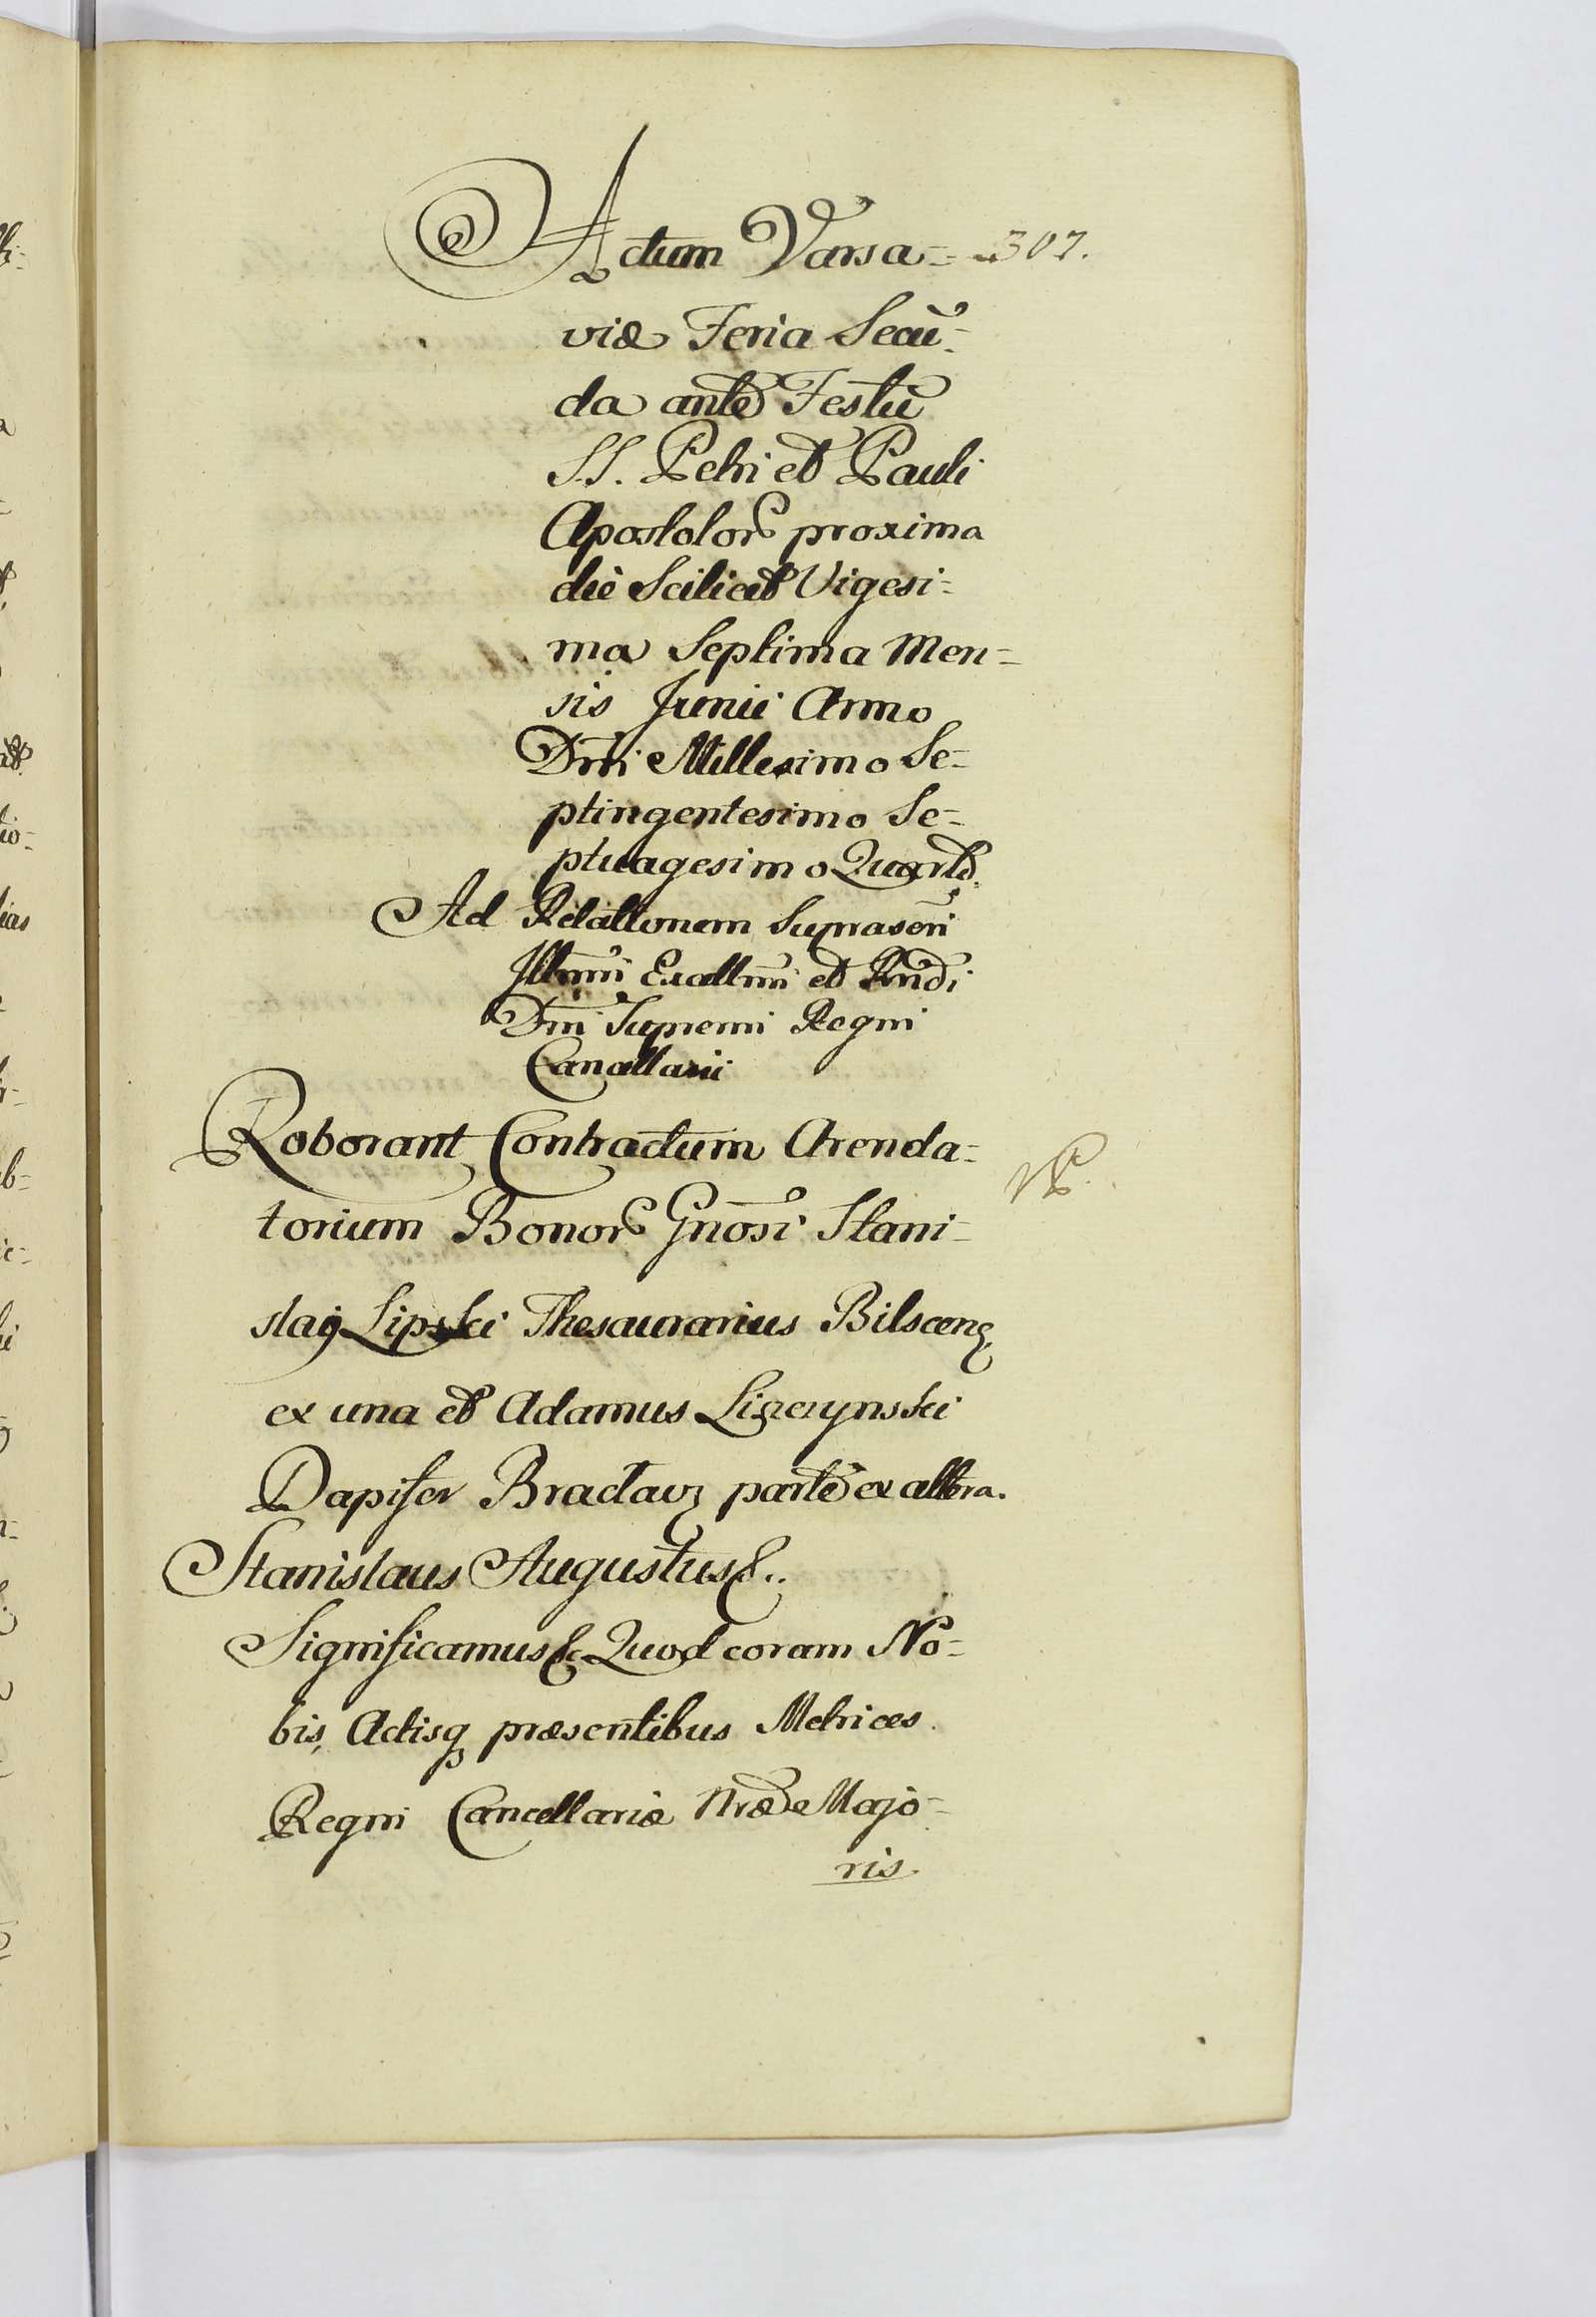 Actum Varsa= 307.
viæ Feria Secū=
da ante Festū
SS. Petri et Pauli
Apostolor proxima
die Scilicet Vigesi=
ma Septima Men=
sis Junii Anno
Dni Millesimo Se=
ptingentesimo Se=
ptuagesimo Quarto.
Ad Relationem Suprascri
Illmi Excellmi et Rndi
Dni Supremi Regni
Cancellarii
Roborant Contractum Arenda=
torium Bonor Gnosi Stani=
slaus Lipski Thesaurarius Bilscen
ex una et Adamus Ligezynski
Dapifer Braclav parte ex altera.
Stanislaus Augustus &..
Significamus & Quod coram No=
bis, Actisq præsentibus Metrices
Regni Cancellariæ Nræ Majo=
ris